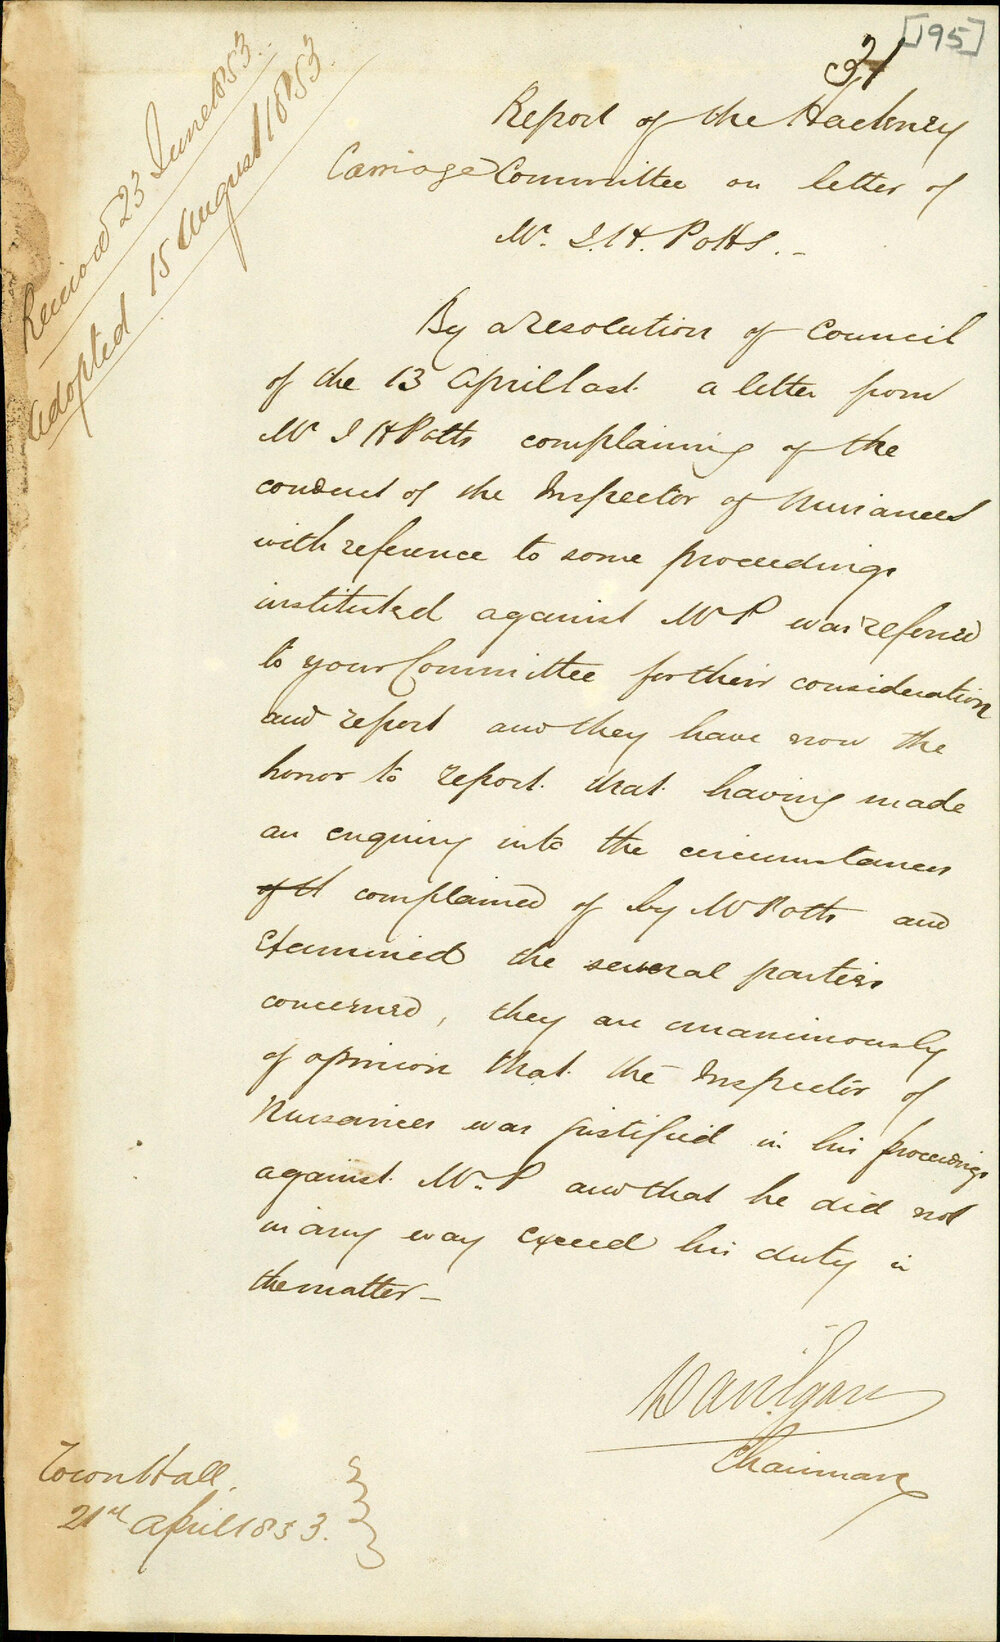 [195]
31
Received 23 June 1853.
Adopted 15 August 1853
Report of the Hackney
Carriage Committee on letter of
Mr. I. H. Potts. -
By a resolution of Council
of the 13 April last a letter from
Mr I H Potts complaining of the
conduct of the Inspector of Nuisances
with reference to some proceedings
instituted against Mr P was referred
to your Committee for their consideration
and report and they have now the
honor to report that having made
an enquiry into the circumstances
complained of by Mr Potts and
examined the several parties
concerned, they are unanimously
of opinion that the Inspector of
Nuisances was justified in his proceedings
against Mr. P and that he did not
in any way exceed his duty in
the matter -
Chairman
Town Hall.
21st April 1853.